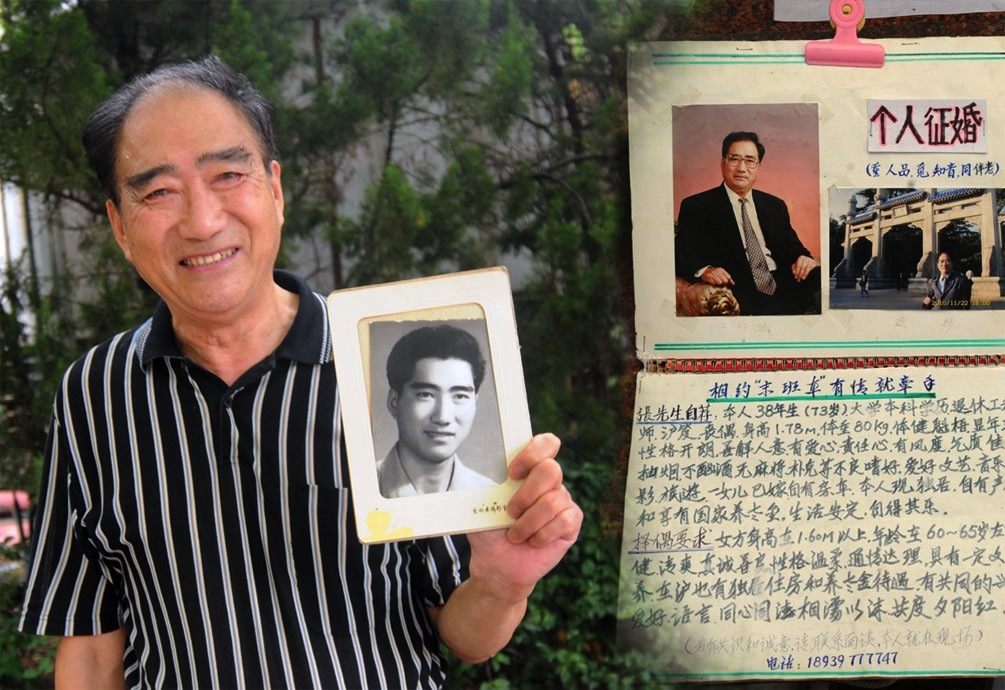 个人征婚
(重人品,觅知音,同伴老)
2010/11/22 16:00
相约"末班车"有情就牵手
張先生自祥,本人38年生(73岁)大学本科学历退休工
师,沪,丧偶,身高1.78M,体重80kg,体健魁梧,显年
性格开朗,善解人意有爱心,责任心,有风度,气质佳
抽烟,不酗酒无麻将,扑克等不良嗜好,爱好文艺,音乐
影,旅游,一女儿已嫁自有房.车,本人现独居,自有产
和享有国家养老金,生活安定,自得其乐.
择偶要求:女方身高在1.60M以上,年龄在60~65岁左
健,清爽,真诚善良,性格温柔,通情达理,具有一定
养,在沪也有独居住房和养老金待遇,有共同的
爱好,语言,同心同德相濡以沫,共度夕阳红
(若有共识和诚意,请联系面谈,本人就在现场)
电话: 18939777747